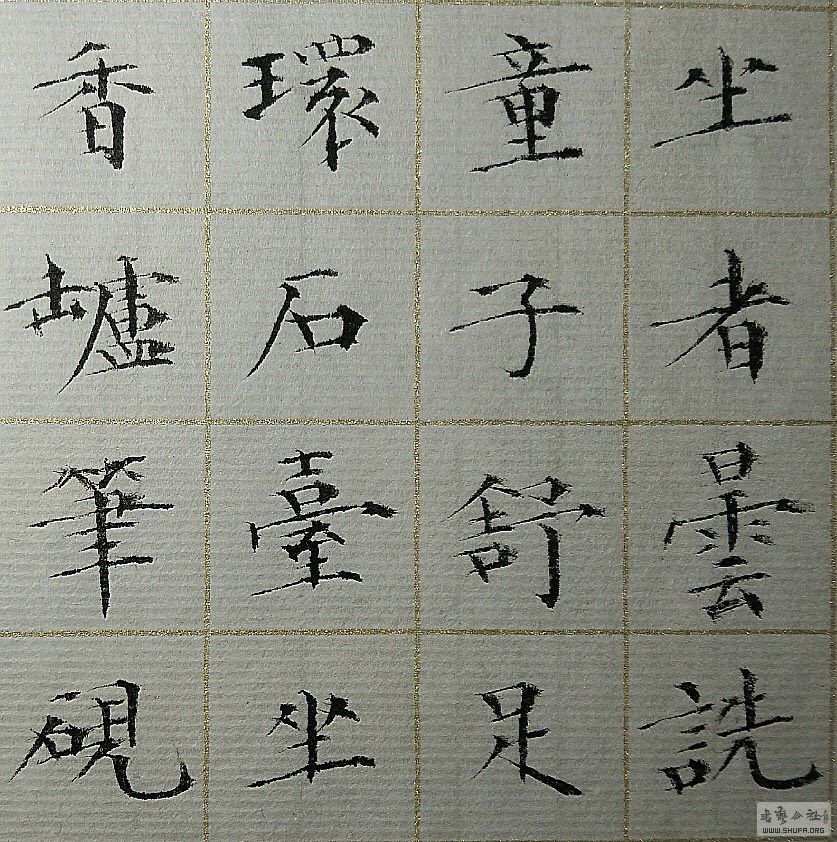 坐者曇詵
童子舒足
環石臺坐
香壚筆硯
WWW.SHUFA.ORG